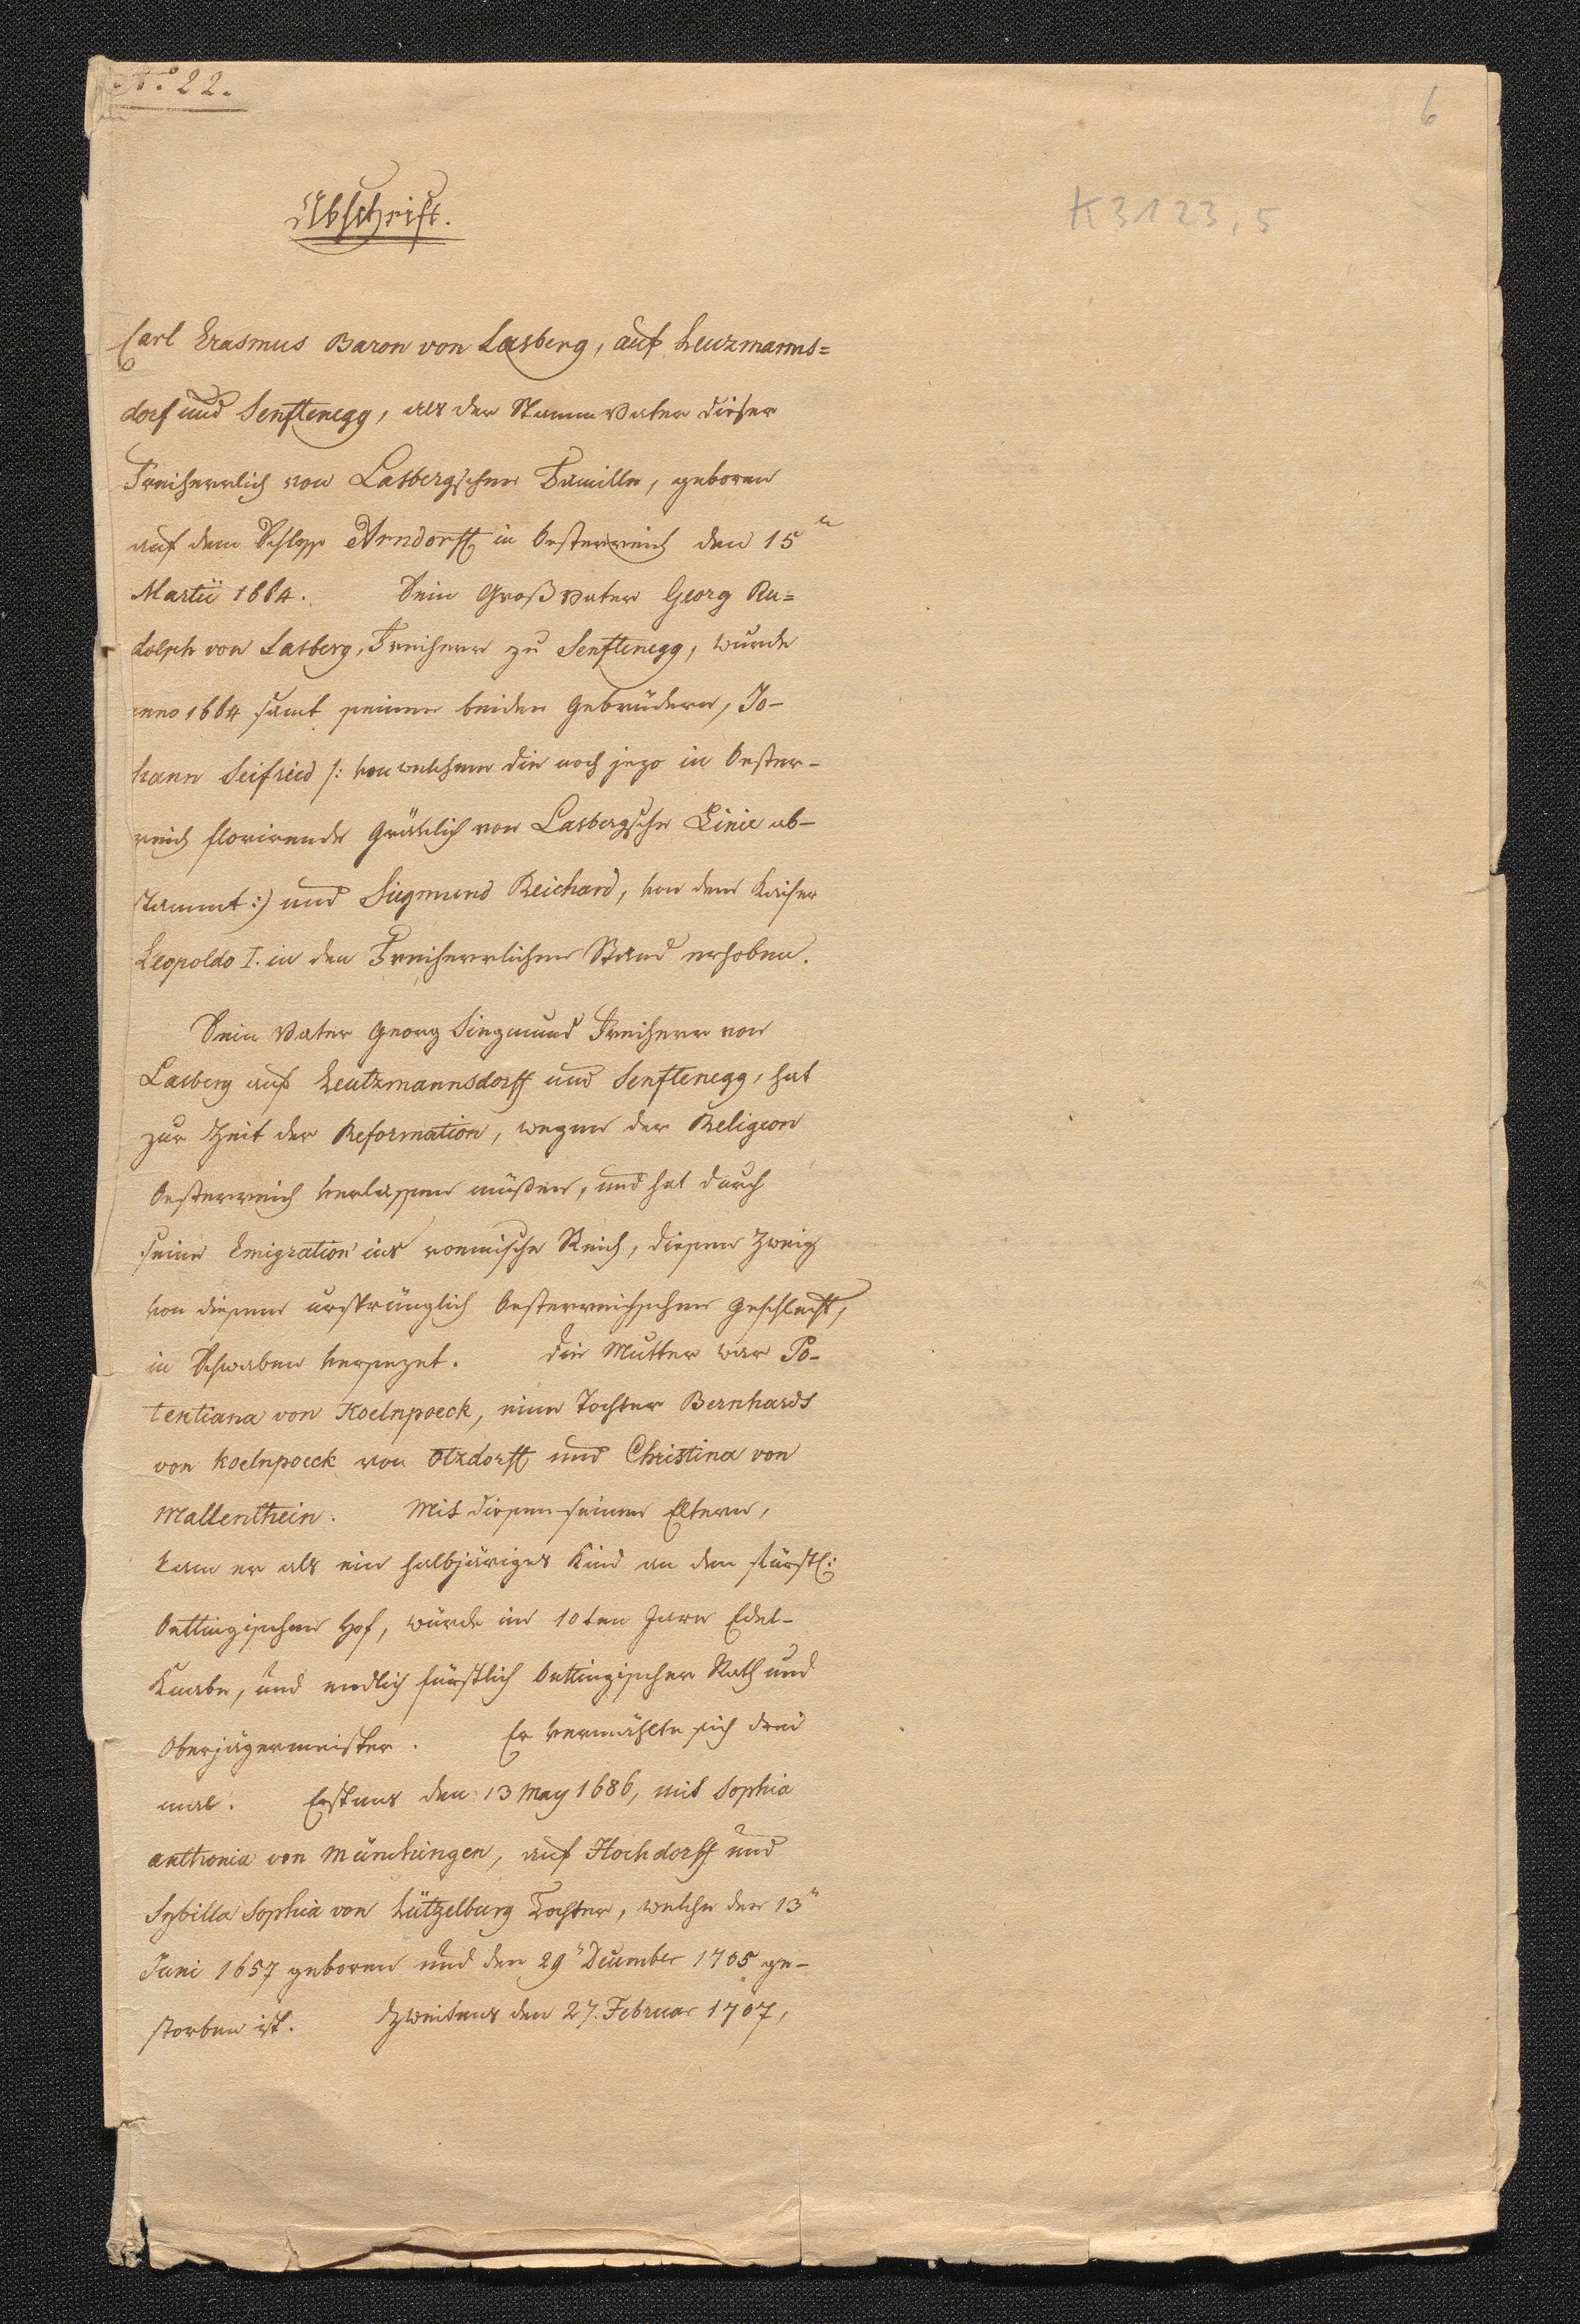 No. 22.
6
K 3123,5
Abschrift.
Carl Erasmus Baron von Lasberg, auf Leuzmanns=
dorf und Senftenegg, als der Stamm Vater dieser
Freiherrlich von Lasbergschen Familie, geboren
auf dem Schloss Arndorff in Oesterreich den 15n
Martii 1664. Sein Großvater Georg Ru=
dolph von Lasberg, Freiherr zu Senftenegg, wurde
anno 1664 samt seinen beiden Gebrüdern, Jo-
hann Seifried /: von welchem die noch jezo in Oester-
reich florirende Gräflich von Lasbergsche Linie ab-
stammt :/ und Siegmund Reichard, von dem Kaiser
Leopoldo I. in den Freiherrlichen Stand erhoben.
Sein Vater Georg Siegmund Freiherr von
Lasberg auf Leutzmannsdorff und Senftenegg, hat
zur Zeit der Reformation, wegen der Religion
Oesterreich verlassen müßen, und hat durch
seine Emigration ins roemische Reich, diesen Zweig
von diesem ursprünglich Oesterreichischen Geschlecht,
in Schwaben versezet. Die Mutter war Po-
tentiana von Koelnpoeck, eine Tochter Bernhards
von Koelnpoeck von Otzdorff und Christina von
Mallenthein. Mit diesen seinen Eltern,
kam er als ein halbjäriges Kind an den fürstl:
Oettingischen Hof, wurde im 10ten Jare Edel-
Knabe, und endlich fürstlich Oettingischer Rath und
Oberjägermeister. Er vermählte sich drei
mal. Erstens den 13 May 1686, mit Sophia
Anthonia von Münchingen, auf Hochdorff und
Sybilla Sophia von Lützelburg Tochter, welche den 13n
Juni 1657 geboren und den 29n December 1705 ge-
storben ist. Zweitens den 27. Februar 1707,